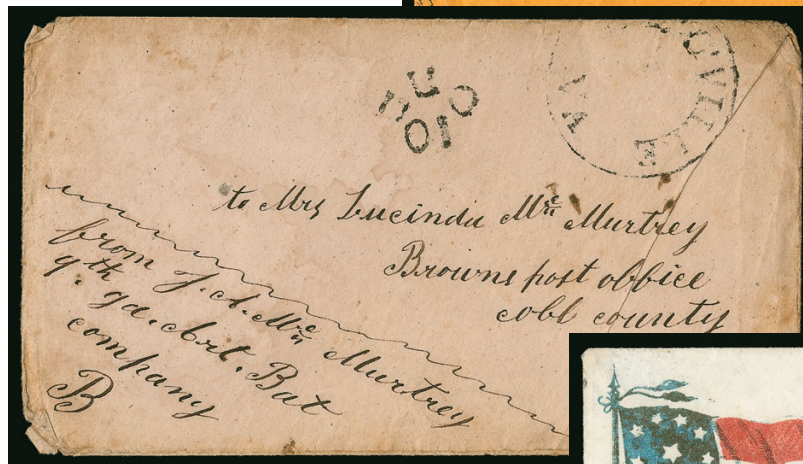 DUE
10
VILLE VA
to Mrs Lucinda Mc Murtrey
Browns post obbice
cobb county
from J. A. Mc Murtrey
9th ga. Art. Bat
company
B